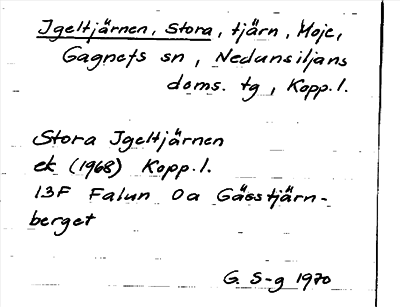 Igeltjärnen, Stora, tjärn, Moje,
Gagnefs sn, Nedansiljans
doms. tg, Kopp.l.
Stora Igeltjärnen
ek (1968) Kopp.l.
13F Falun 0a Gässtjärn-
berget
G. S-g 1970